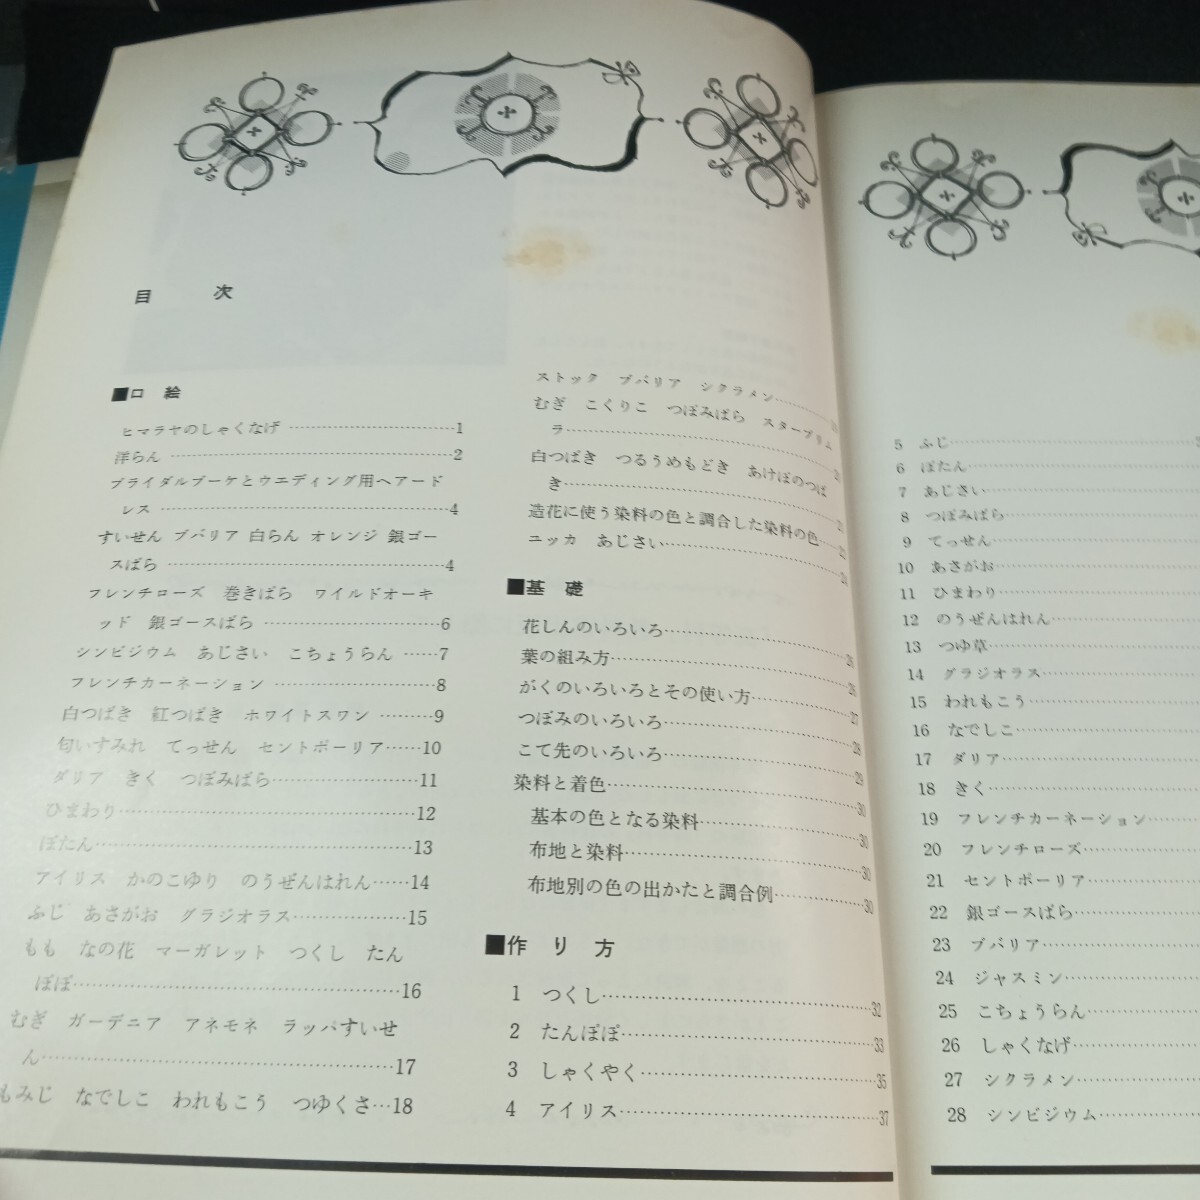 目　次
■口　絵
ヒマラヤのしゃくなげ……………………1
洋らん……………………2
ブライダルブーケとウエディング用ヘアード
レス……………………4
すいせん ブバリア 白らん オレンジ 銀ゴー
スばら……………………4
フレンチローズ 巻きばら ワイルドオーキ
ッド 銀ゴースばら……………………6
シンビジウム あじさい こちょうらん……7
フレンチカーネーション……………………8
白つばき 紅つばき ホワイトスワン………9
匂いすみれ てっせん セントポーリア……10
ダリア きく つぼみばら……………………11
ひまわり……………………12
ぼたん……………………13
アイリス かのこゆり のうぜんはれん……14
ふじ あさがお グラジオラス………………15
もも なの花 マーガレット つくし たん
ぽぽ……………………16
むぎ ガーデニア アネモネ ラッパすいせ
ん……………………17
もみじ なでしこ われもこう つゆくさ…18
ストック ブバリア シクラメン…………
むぎ こくりこ つぼみばら スタープリム
ラ……………………
白つばき つるうめもどき あけぼのつば
き……………………
造花に使う染料の色と調合した染料の色…
ニッカ あじさい……………………
■基　礎
花しんのいろいろ……………………
葉の組み方……………………26
がくのいろいろとその使い方…………27
つぼみのいろいろ……………………28
こて先のいろいろ……………………29
染料と着色……………………30
基本の色となる染料……………………30
布地と染料……………………30
布地別の色の出かたと調合例…………30
■作 り 方
1 つくし……………………32
2 たんぽぽ……………………33
3 しゃくやく……………………35
4 アイリス……………………37
5 ふじ……………………
6 ぼたん……………………
7 あじさい……………………
8 つぼみばら……………………
9 てっせん……………………
10 あさがお……………………
11 ひまわり……………………
12 のうぜんはれん……………………
13 つゆ草……………………
14 グラジオラス……………………
15 われもこう……………………
16 なでしこ……………………
17 ダリア……………………
18 きく……………………
19 フレンチカーネーション…………
20 フレンチローズ……………………
21 セントポーリア……………………
22 銀ゴースばら……………………
23 ブバリア……………………
24 ジャスミン……………………
25 こちょうらん……………………
26 しゃくなげ……………………
27 シクラメン……………………
28 シンビジウム……………………